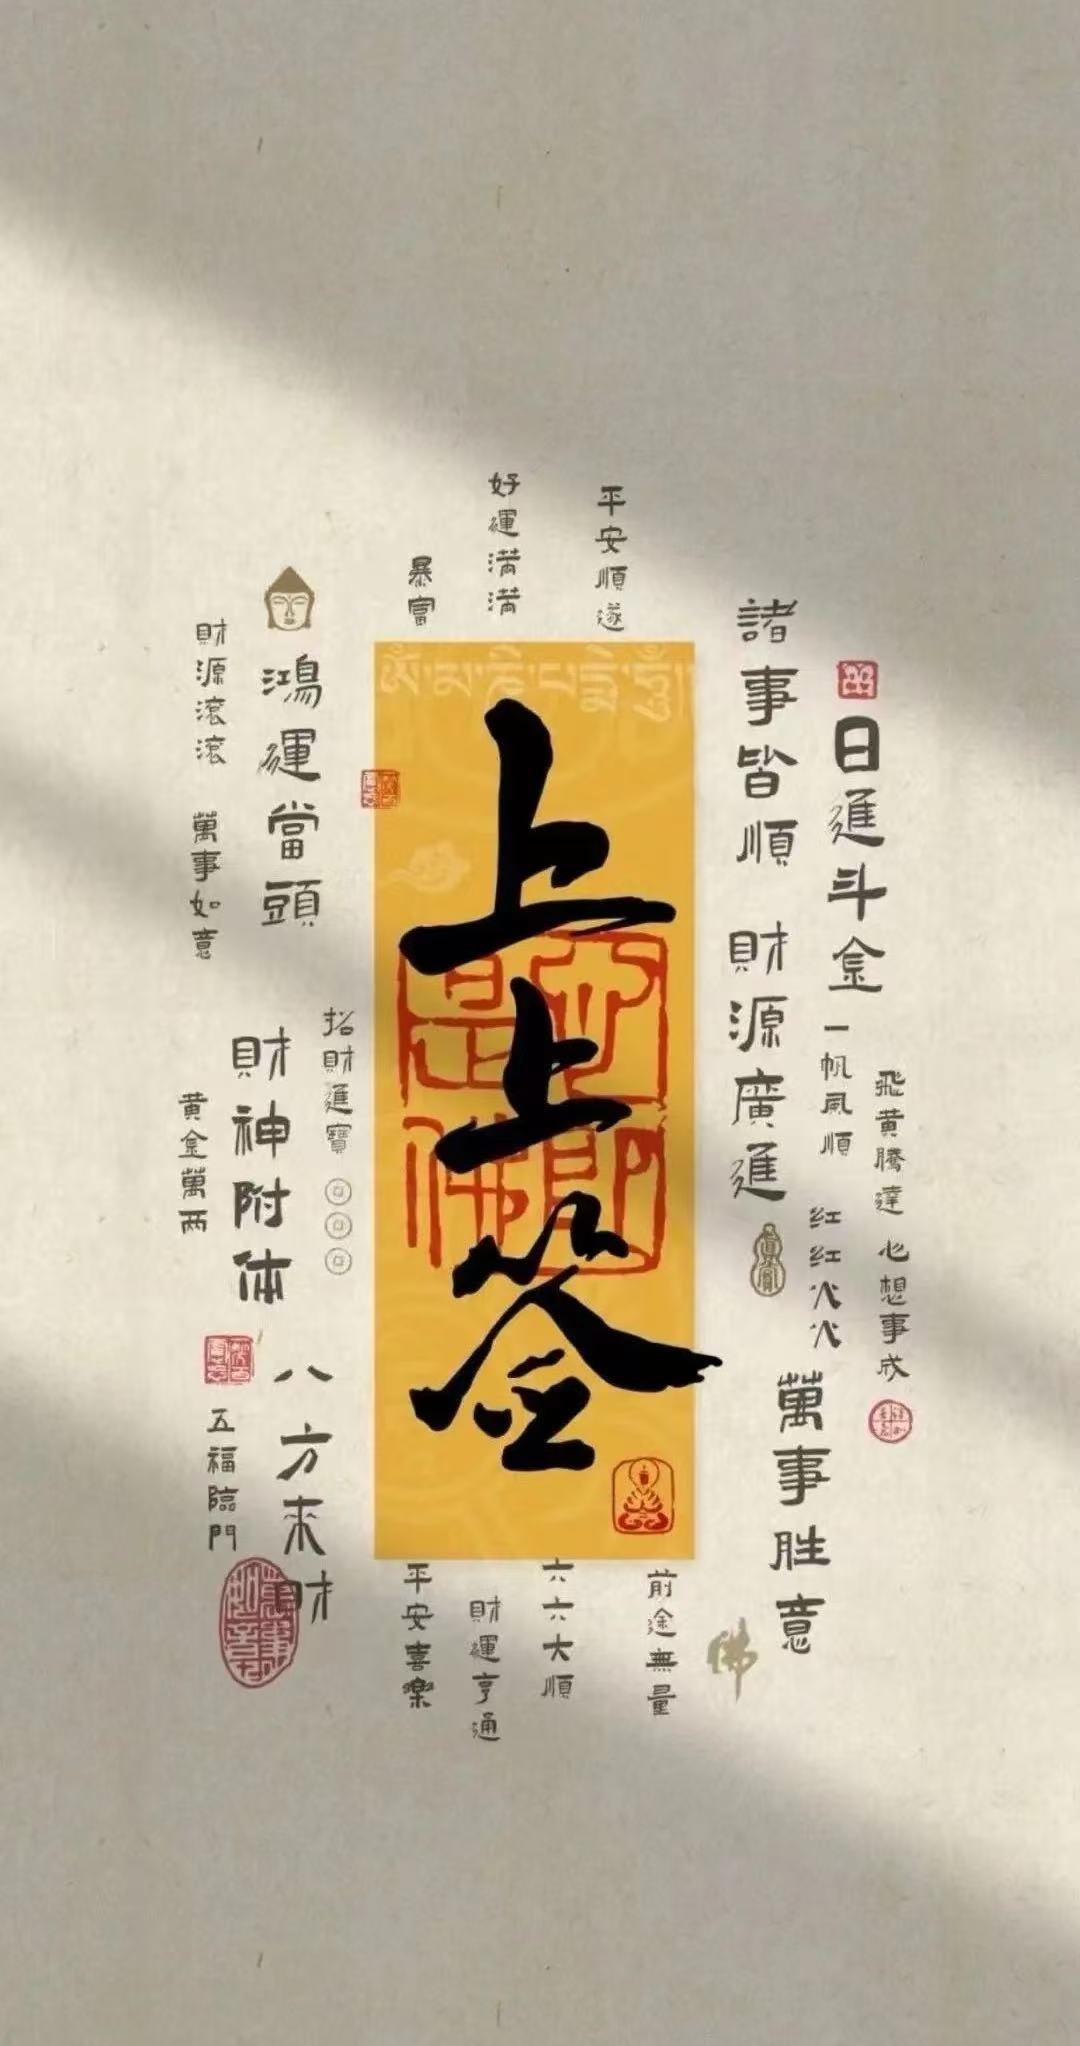 好運满满
平安順遂
暴富
諸事皆順
日進斗金
財源滾滾
鴻運當頭
萬事如意
上上签
心即是佛
財源廣進
一帆風順
飛黄騰達
招財進寶
財神附体
黄金萬两
红红火火
心想事成
八方来財
五福臨門
萬事胜意
平安喜樂
財運亨通
六六大順
前途無量
佛